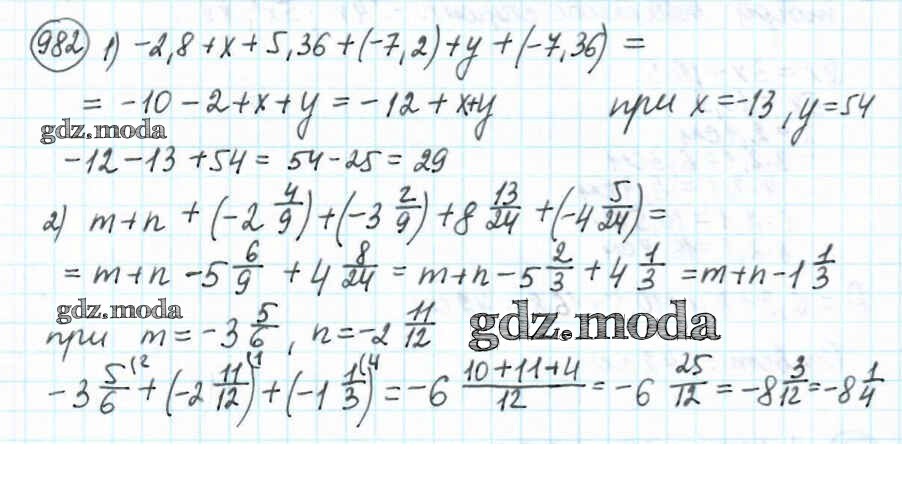 982 1) -2,8 + x + 5,36 + (-7,2) + y + (-7,36) =
= -10 - 2 + x + y = -12 + x+y при x = -13, y = 54
gdz.moda
-12 - 13 + 54 = 54 - 25 = 29
2) m + n + (-2 4/9) + (-3 2/9) + 8 13/24 + (-4 5/24) =
= m + n - 5 6/9 + 4 8/24 = m + n - 5 2/3 + 4 1/3 = m + n - 1 1/3
gdz.moda
при m = -3 5/6, n = -2 11/12 gdz.moda
-3 5/6 (2 + (-2 11/12) (1 + (-1 1/3) (4 = -6 10+11+4/12 = -6 25/12 = -8 3/12 = -8 1/4